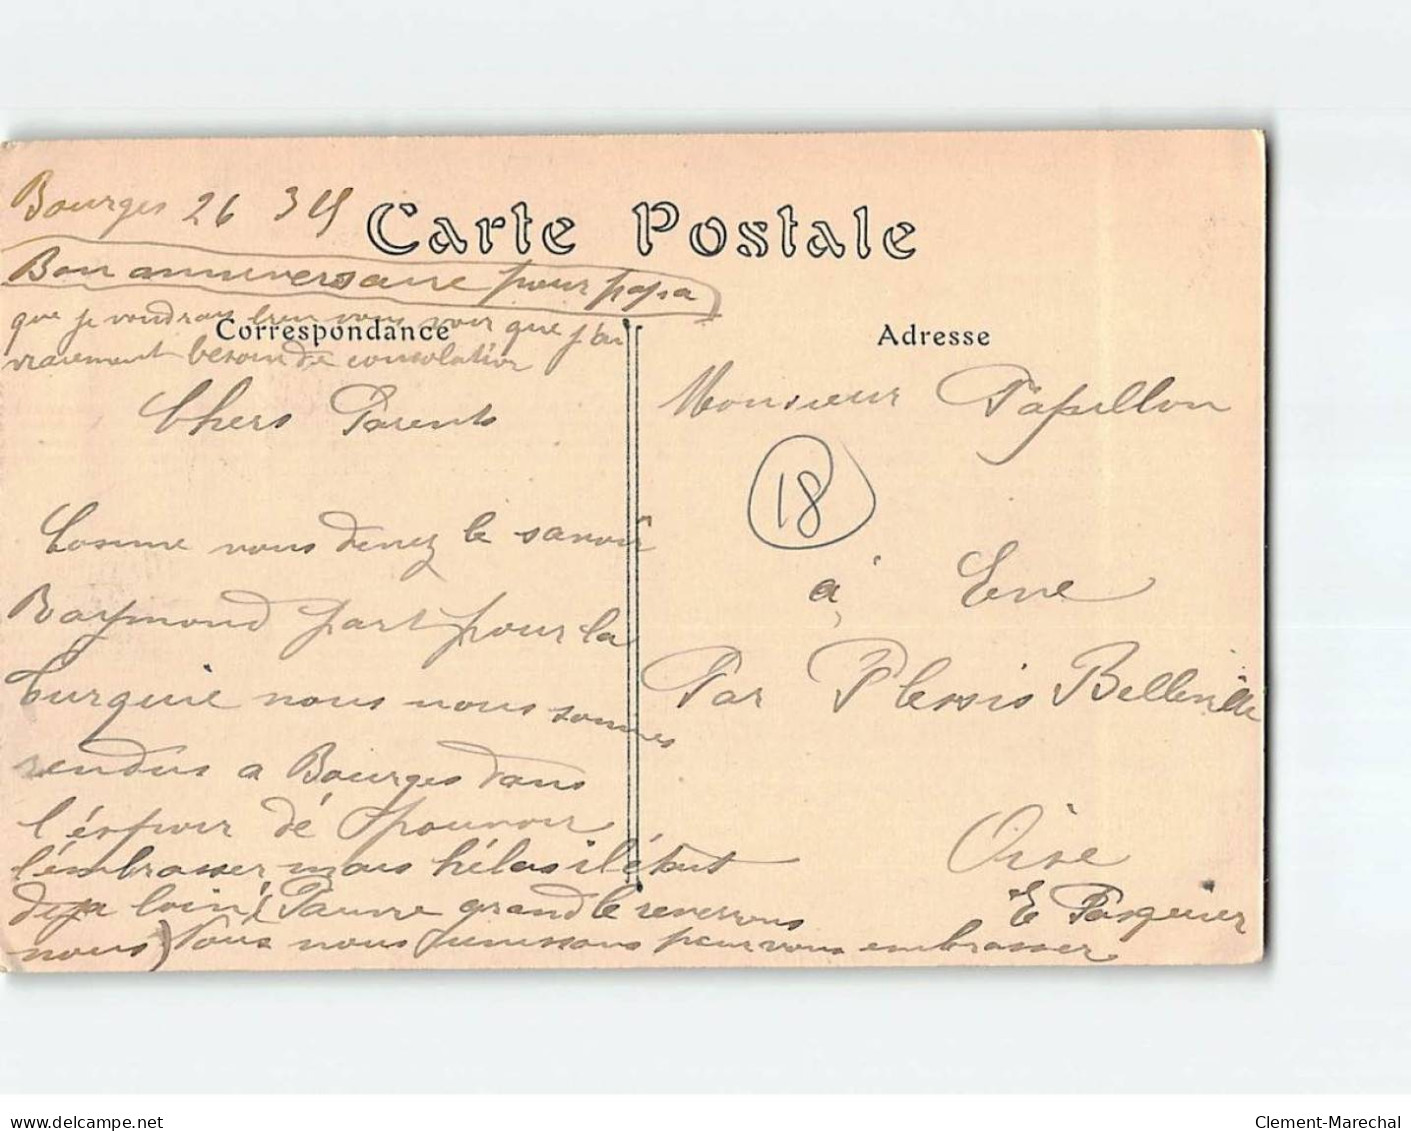 Bourges 26 3 15
Carte Postale
Bon anniversaire pour papa
que je voudrais bien vous voir que j'ai
vraiment besoin de consolation
Correspondance
Chers Parents
Comme vous devez le savoir
Raymond part pour la
Turquie nous nous sommes
rendus a Bourges dans
l'éspoir dé pouvoir
l'embrasser mais hélas il était
deja loin (Pauvre grand le reverrons
nous) Tous nous unissons pour vous embrasser
E Pasquier
Adresse
Monsieur Papillon
18
à Eve
Par Plessis Belleville
Oise
delcampe.net
Clement-Marechal